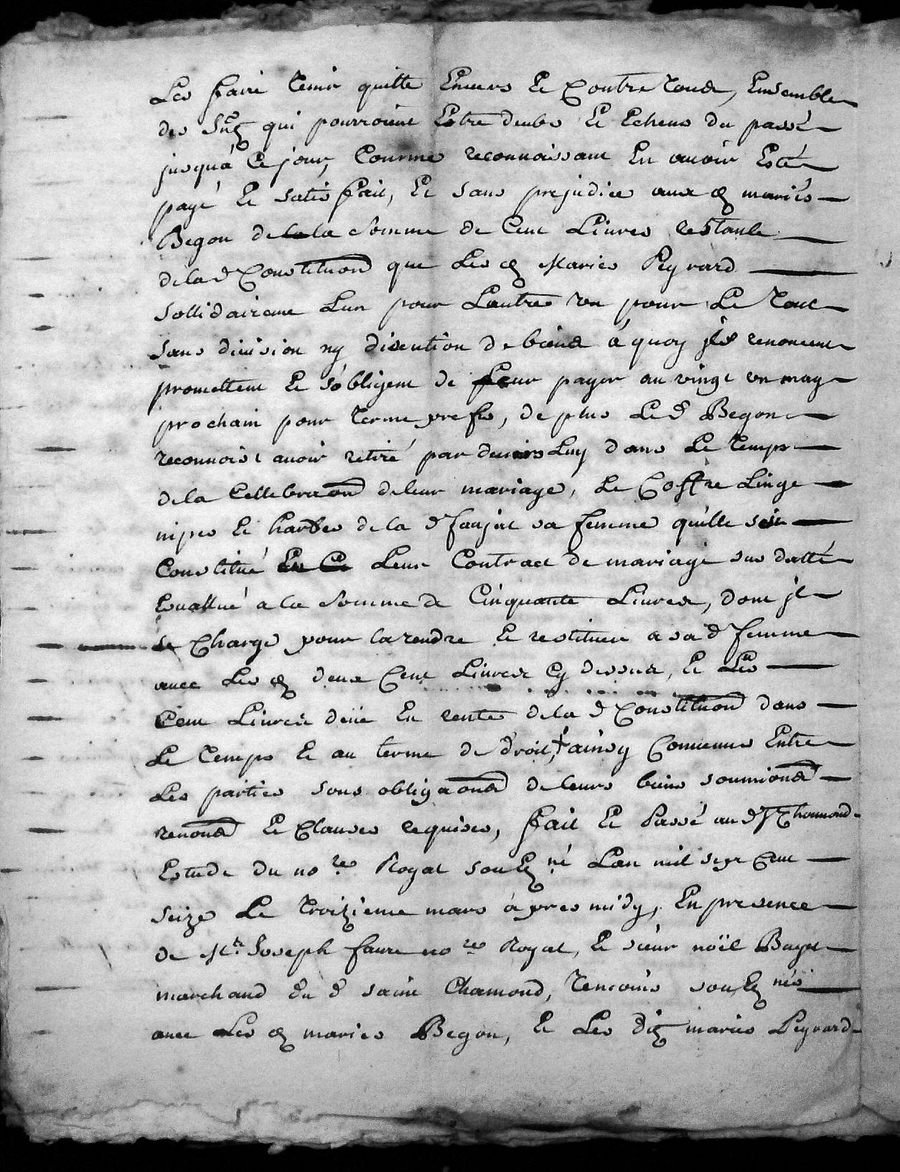 Les faire tenir quitte Envers Et Contre tous, Ensemble
des qui pourroient Estre deubs Et Echeus du passé
jusqu'à Ce jour, Comme reconnoissant En avoir Esté
payé Et satisfait, Et sans prejudice aux mariés
Begon de la somme de Cent Livres restante
de la d Constituon que Les mariés Peyrard
sollidairemt Lun pour Lautre un pour Le tout
sans division ny discution de biens à quoy jls renoncent
promettent Et s'obligent de leur payer au vingt un may
prochain pour terme prefis, de plus Le d Begon
reconnoist avoir retiré par devers Luy dans Le temps
de la Cellebraon de leur mariage, Le Coffre Linge
nipes Et hardes de la d faujat sa femme qu'elle s'est
Constitué Leur Contract de mariage sus datté
Evallué a la somme de Cinquante Livres, dont jl
se Charge pour la rendre Et restituer a sa d femme
avec Les deux Cent Livres Cy dessus, Et Les
Cent Livres deüe En reste de la d Constituon dans
Le temps Et au terme de droit, + ainsy Convenu Entre
Les parties sous obligaons de leurs biens soumions
renons Et Clauses requises, fait Et Passé au d St Chamond
Estude du no.re Royal soubz.né Lan mil sept Cent
seize Le troizieme mars à pres midy, En presence
de Me Joseph faure no.re Royal, Et sieur noël
marchand du d saint Chamond, temoins soubz.nés
avec Les mariés Begon, Et Les ditz mariés Peyrard